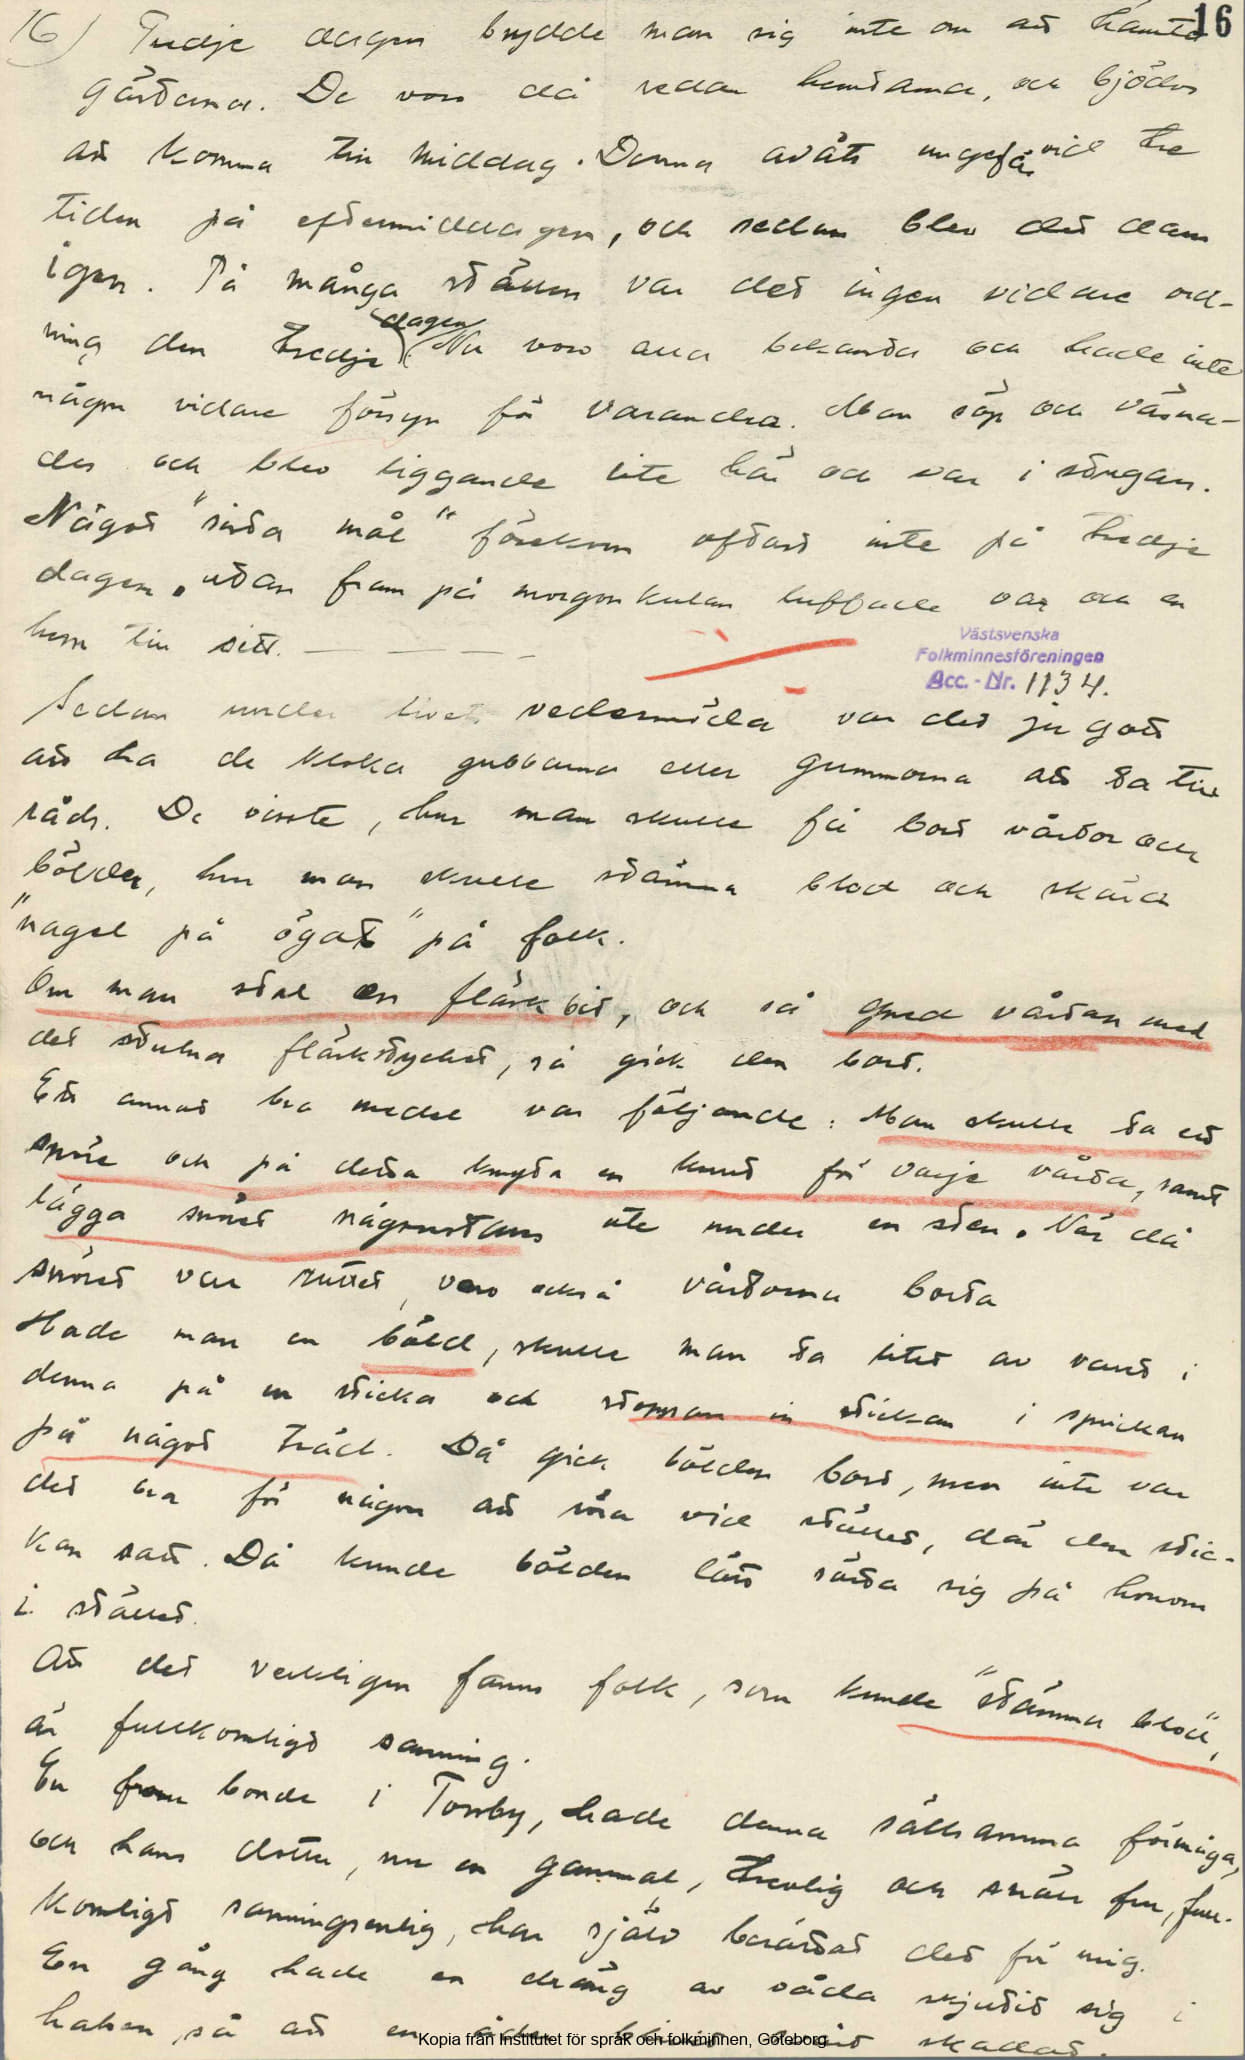 16) Tredje dagen brydde man sig inte om att hämta 16
gästerna. De voro då redan hemtama, och bjödos
att komma till middag. Denna avåts ungefär vid tre
tiden på eftermiddagen, och sedan blev det dans
igen. På många ställen var det ingen vidare ord-
ning den tredje dagen. Nu voro alla bekanta och hade inte
någon vidare försyn för varandra. Man söp och väsna-
des och blev liggande lite här och var i stugan.
Något "sista mål" förekom oftast inte på tredje
dagen, utan fram på morgonkulan luffade var och en
hem till sitt. — — — —
Västsvenska
Folkminnesföreningen
Acc.-Nr. 1134.
Sedan under livets vedermöda var det ju gott
att ha de kloka gubbarna eller gummorna att ta till
råds. De visste, hur man skulle få bort vårtor och
bölder, hur man skulle stämma blod och skära
"nagel på ögat" på folk.
Om man stal en fläskbit, och så gned vårtan med
det stulna fläskstycket, så gick den bort.
Ett annat bra medel var följande: Man skulle ta ett
snöre och på detta knyta en knut för varje vårta, samt
lägga snöret någonstans ute under en sten. När då
snöret var ruttet, voro också vårtorna borta
Hade man en böld, skulle man ta litet av varet i
denna på en sticka och stoppa in stickan i sprickan
på något träd. Då gick bölden bort, men inte var
det bra för någon att röra vid stället, där den stic-
kan satt. Då kunde bölden lätt sätta sig på honom
i stället.
Att det verkligen fanns folk, som kunde "stämma blod",
är fullkomligt sanning.
En from bonde i Torsby, hade denna sällsamma förmåga,
och hans dotter, nu en gammal, trevlig och snäll fru, full-
komligt sanningsenlig, har själv berättat det för mig.
En gång hade en dräng av våda skjutit sig i
halsen, så att en åder blivit skadad.
Kopia från Institutet för språk och folkminnen, Göteborg